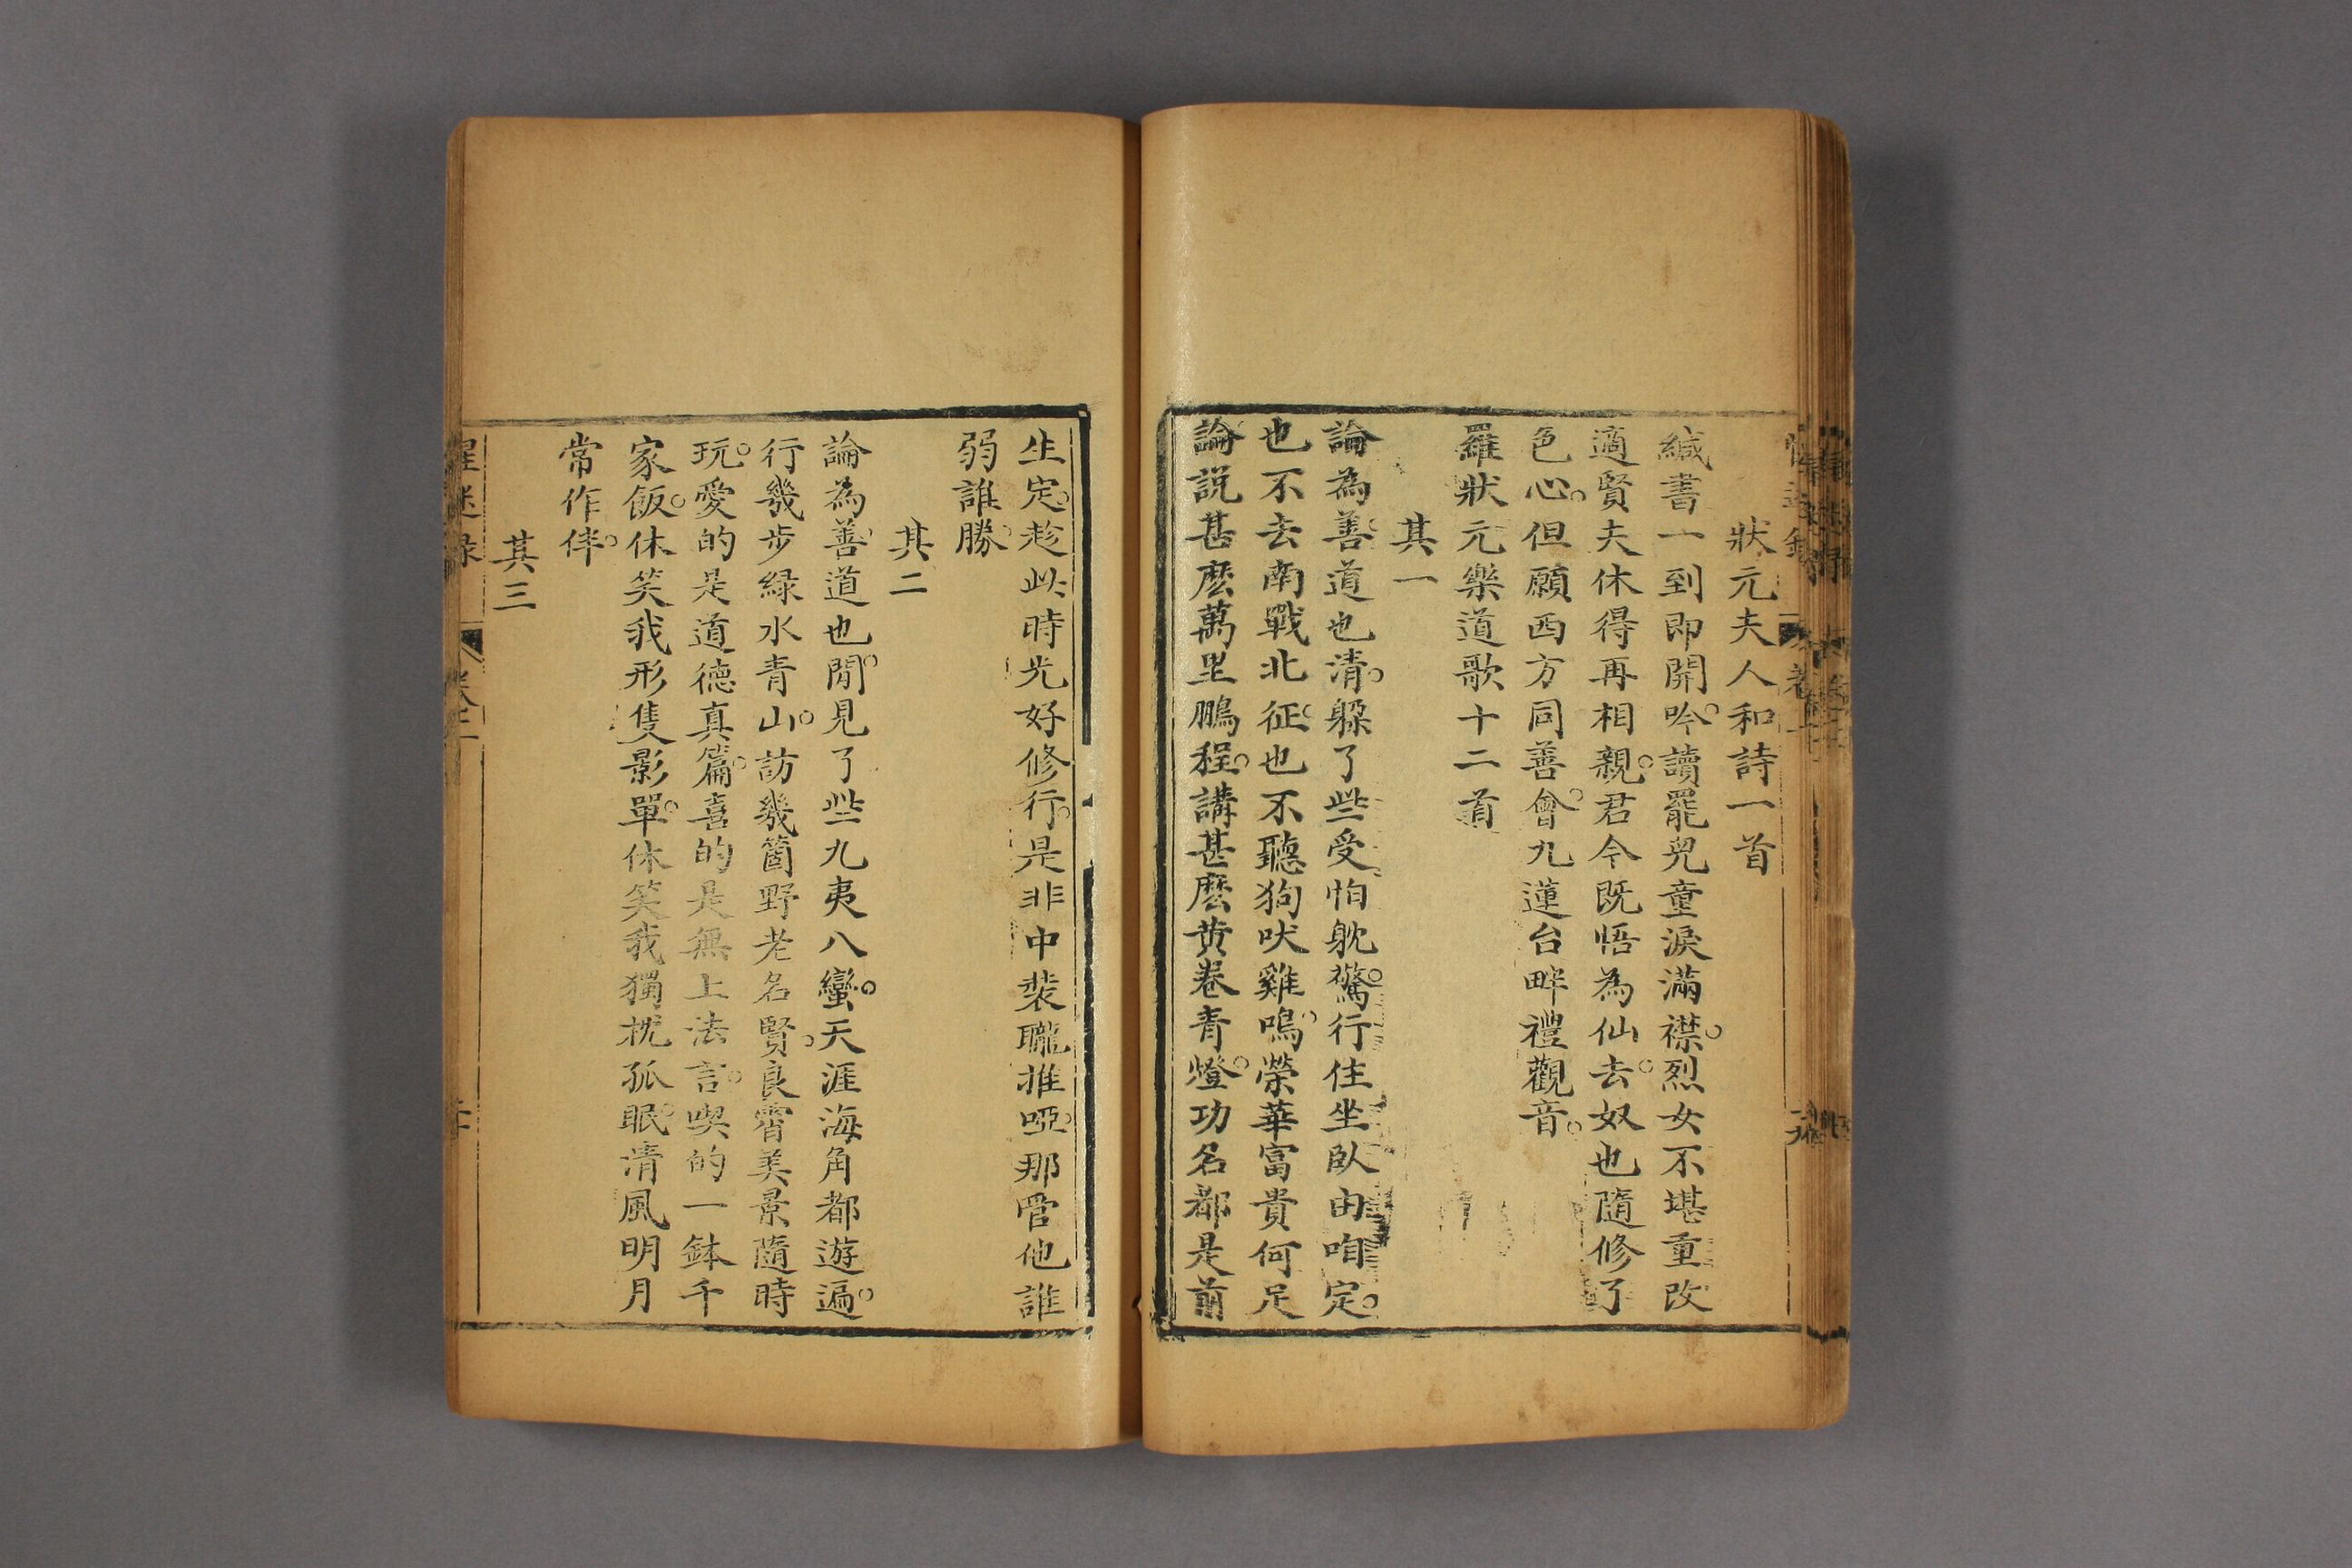 狀元夫人和詩一首
緘書一到即開吟。讀罷兒童淚滿襟。烈女不堪重改
適賢夫休得再相親。君今既悟為仙去。奴也隨修了
色心。但願西方同善會。九蓮台畔禮觀音。
羅狀元樂道歌十二首
其一
論為善。道也清。躲了些受怕躭驚。行住坐臥由咱定。
也不去南戰北征。也不聽狗吠雞鳴。榮華富貴何足
論。說甚麽萬里鵬程。講甚麽黄卷青燈。功名都是前
生定。趁此時光好修行。是非中裝聾推啞。那管他誰
弱誰勝。
其二
論為善。道也閒。見了些九夷八蠻。天涯海角都遊遍。
行幾步緑水青山。訪幾箇野老名賢。良霄美景隨時
玩。愛的是道德真篇。喜的是無上法言。喫的一鉢千
家飯。休笑我形隻影單。休笑我獨枕孤眠。清風明月
常作伴。
其三
醒迷録 卷二